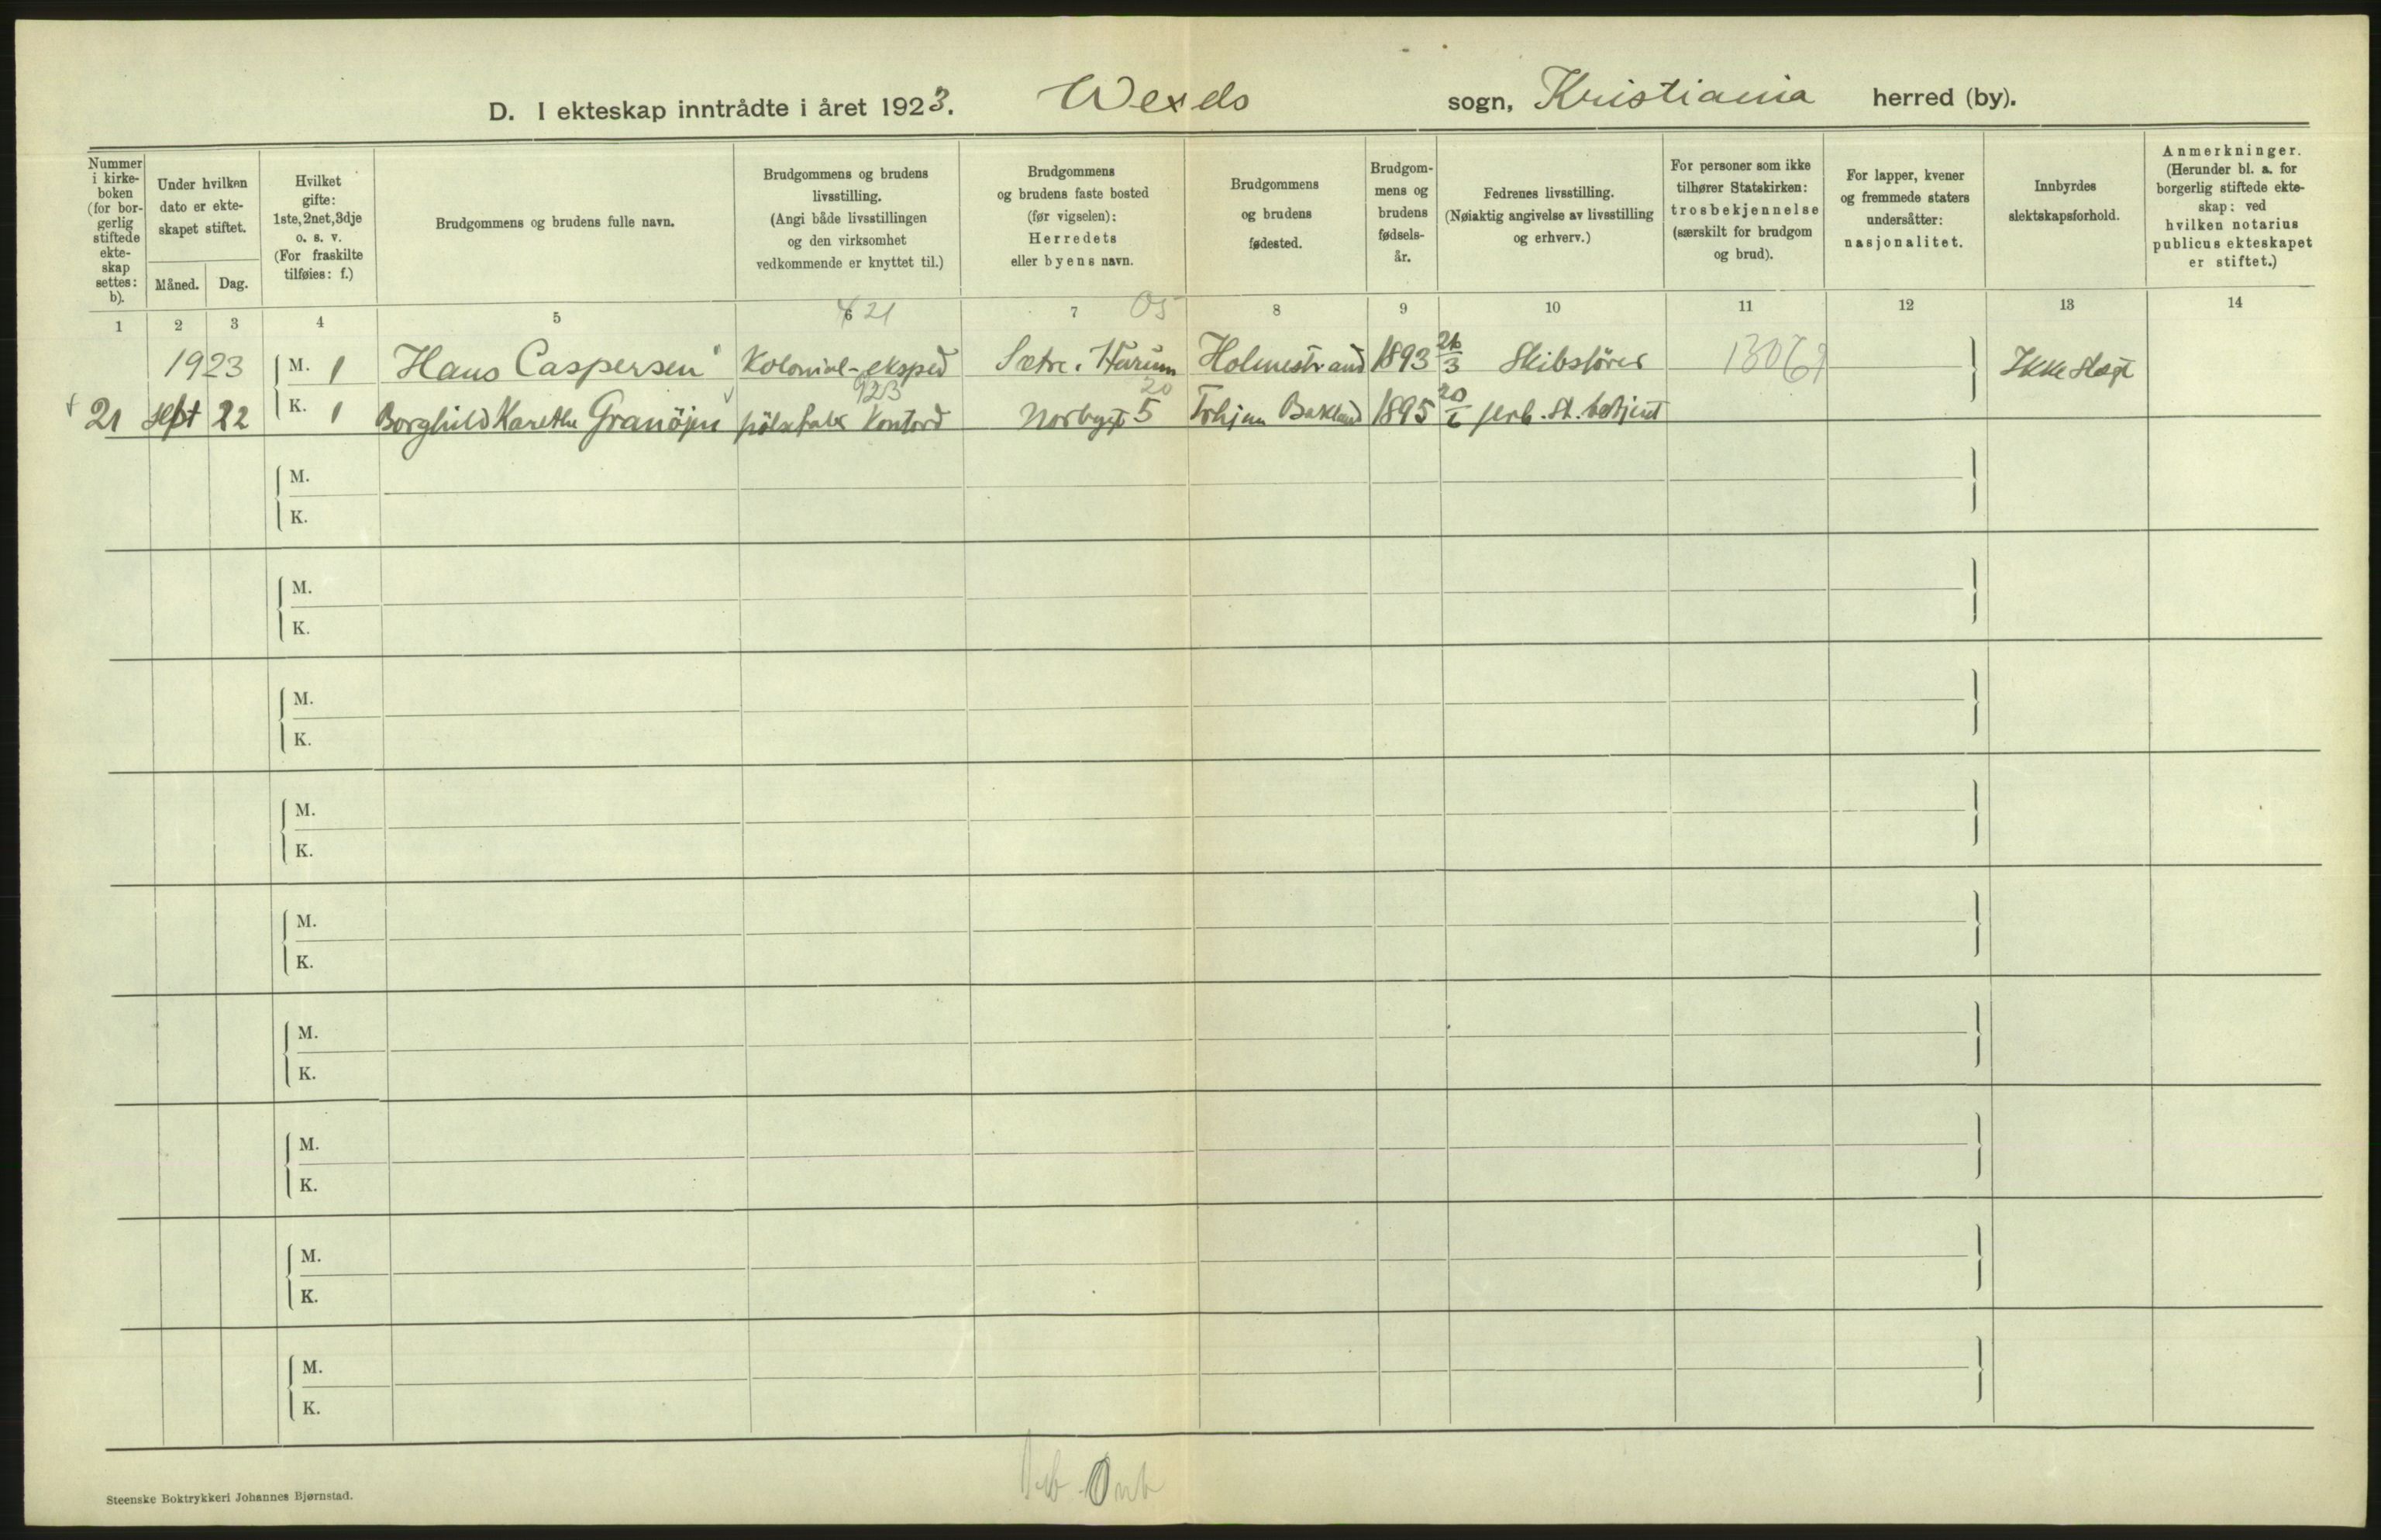 D. I ekteskap inntrådte i året 1923. Wexels sogn, Kristiania herred (by).
Nummer i kirkeboken (for borgerlig stiftede ekteskap settes: b).
Under hvilken dato er ekteskapet stiftet.
Måned. Dag.
Hvilket gifte: 1ste, 2net, 3dje o. s. v. (For fraskilte tilføies: f.)
Brudgommens og brudens fulle navn.
Brudgommens og brudens livsstilling. (Angi både livsstillingen og den virksomhet vedkommende er knyttet til.)
Brudgommens og brudens faste bosted (før vigselen): Herredets eller byens navn.
Brudgommens og brudens fødested.
Brudgommens og brudens fødselsår.
Fedrenes livsstilling. (Nøiaktig angivelse av livsstilling og erhverv.)
For personer som ikke tilhører Statskirken: trosbekjennelse (særskilt for brudgom og brud).
For lapper, kvener og fremmede staters undersåtter: nasjonalitet.
Innbyrdes slektskapsforhold.
Anmerkninger. (Herunder bl. a. for borgerlig stiftede ekteskap: ved hvilken notarius publicus ekteskapet er stiftet.)
1 2 3 4 5 6 7 8 9 10 11 12 13 14
21 05
1923 M. 1 Hans Caspersen Kolonial-eksped Sætre i Hurum Holmestrand 1893 26/3 Skibsfører 1306 Ikke Slægt
923 20
21 sept 22 K. 1 Borghild Karethe Granöjen pölsefabr Kontord Norbygt 5 Trhjem Bakland 1895 20/6 jerb. st. betjent
M.
K.
M.
K.
M.
K.
M.
K.
M.
K.
M.
K.
M.
K.
M.
K.
M.
K.
Steenske Boktrykkeri Johannes Bjørnstad.